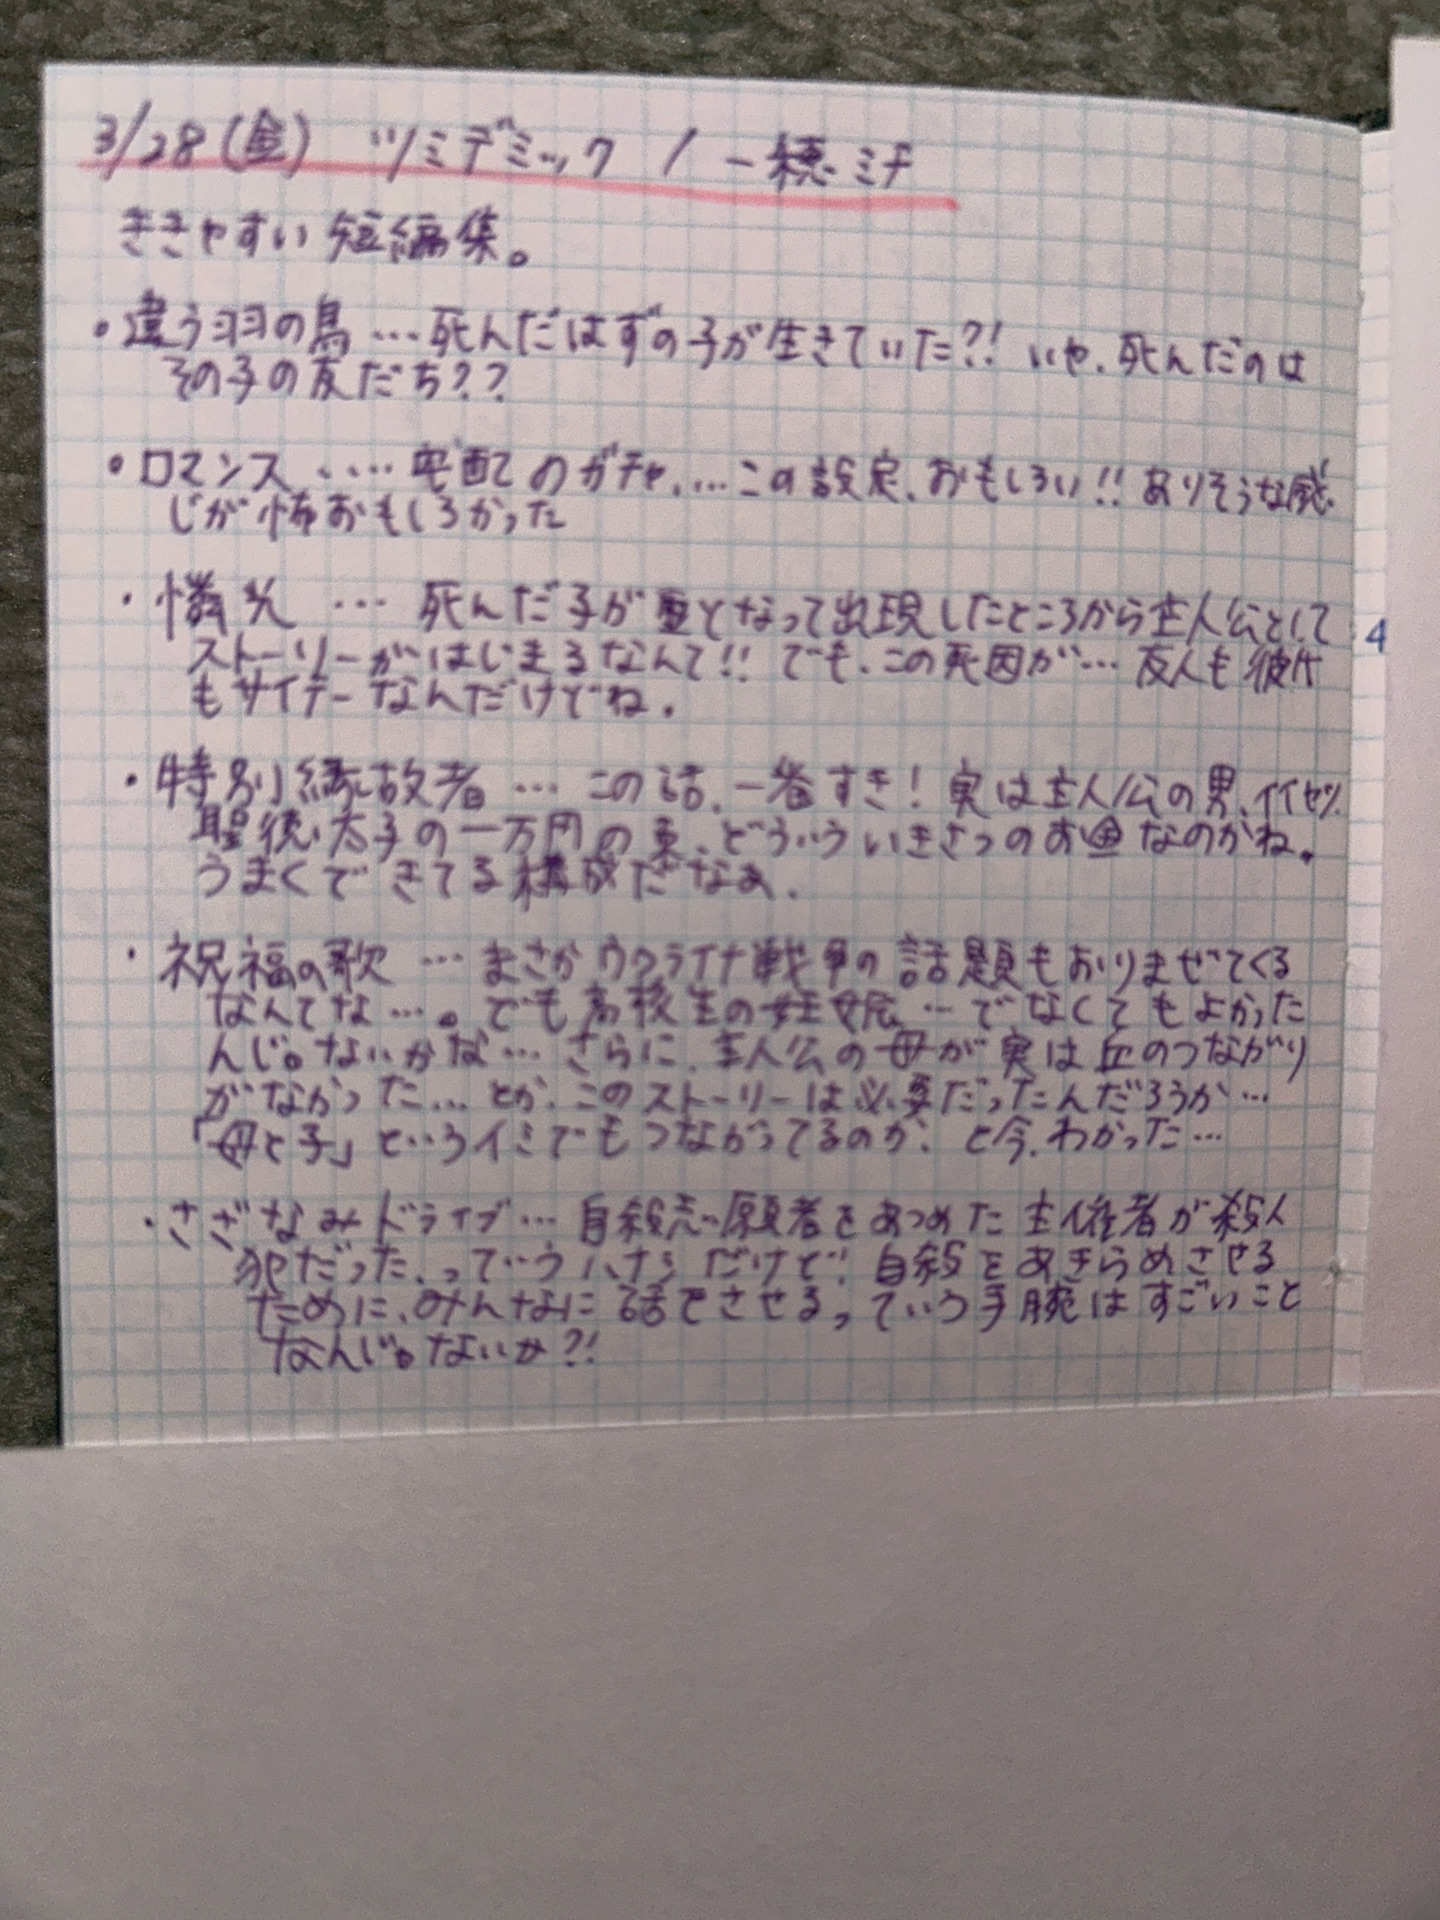 3/28(金) ツミデミック / 一穂ミチ
ききやすい短編集。
・違う羽の鳥 … 死んだはずの子が生きていた?! いや、死んだのは
その子の友だち??
・ロマンス … 宅配のガチャ、…この設定、おもしろい!! ありそうな感
じが怖おもしろかった
・憐光 … 死んだ子が霊となって出現したところから主人公として
ストーリーがはじまるなんて!! でも、この死因が… 友人も彼氏
もサイテーなんだけどね。
・特別縁故者 … この話、一番すき! 実は主人公の男、イイヤツ。
聖徳太子の一万円の束、どういういきさつのお金なのかね。
うまくできてる構成だなぁ。
・祝福の歌 … まさかウクライナ戦争の話題もおりまぜてくる
なんてな…。でも高校生の妊娠…でなくてもよかった
んじゃないかな… さらに、主人公の母が実は血のつながり
がなかった…とか、このストーリーは必要だったんだろうか…
「母と子」というイミでもつながってるのか、と今、わかった…
・さざなみドライブ … 自殺志願者をあつめた主催者が殺人
犯だった、っていうハナシだけど! 自殺をあきらめさせる
ために、みんなに話をさせるっていう手腕はすごいこと
なんじゃないか?!
4